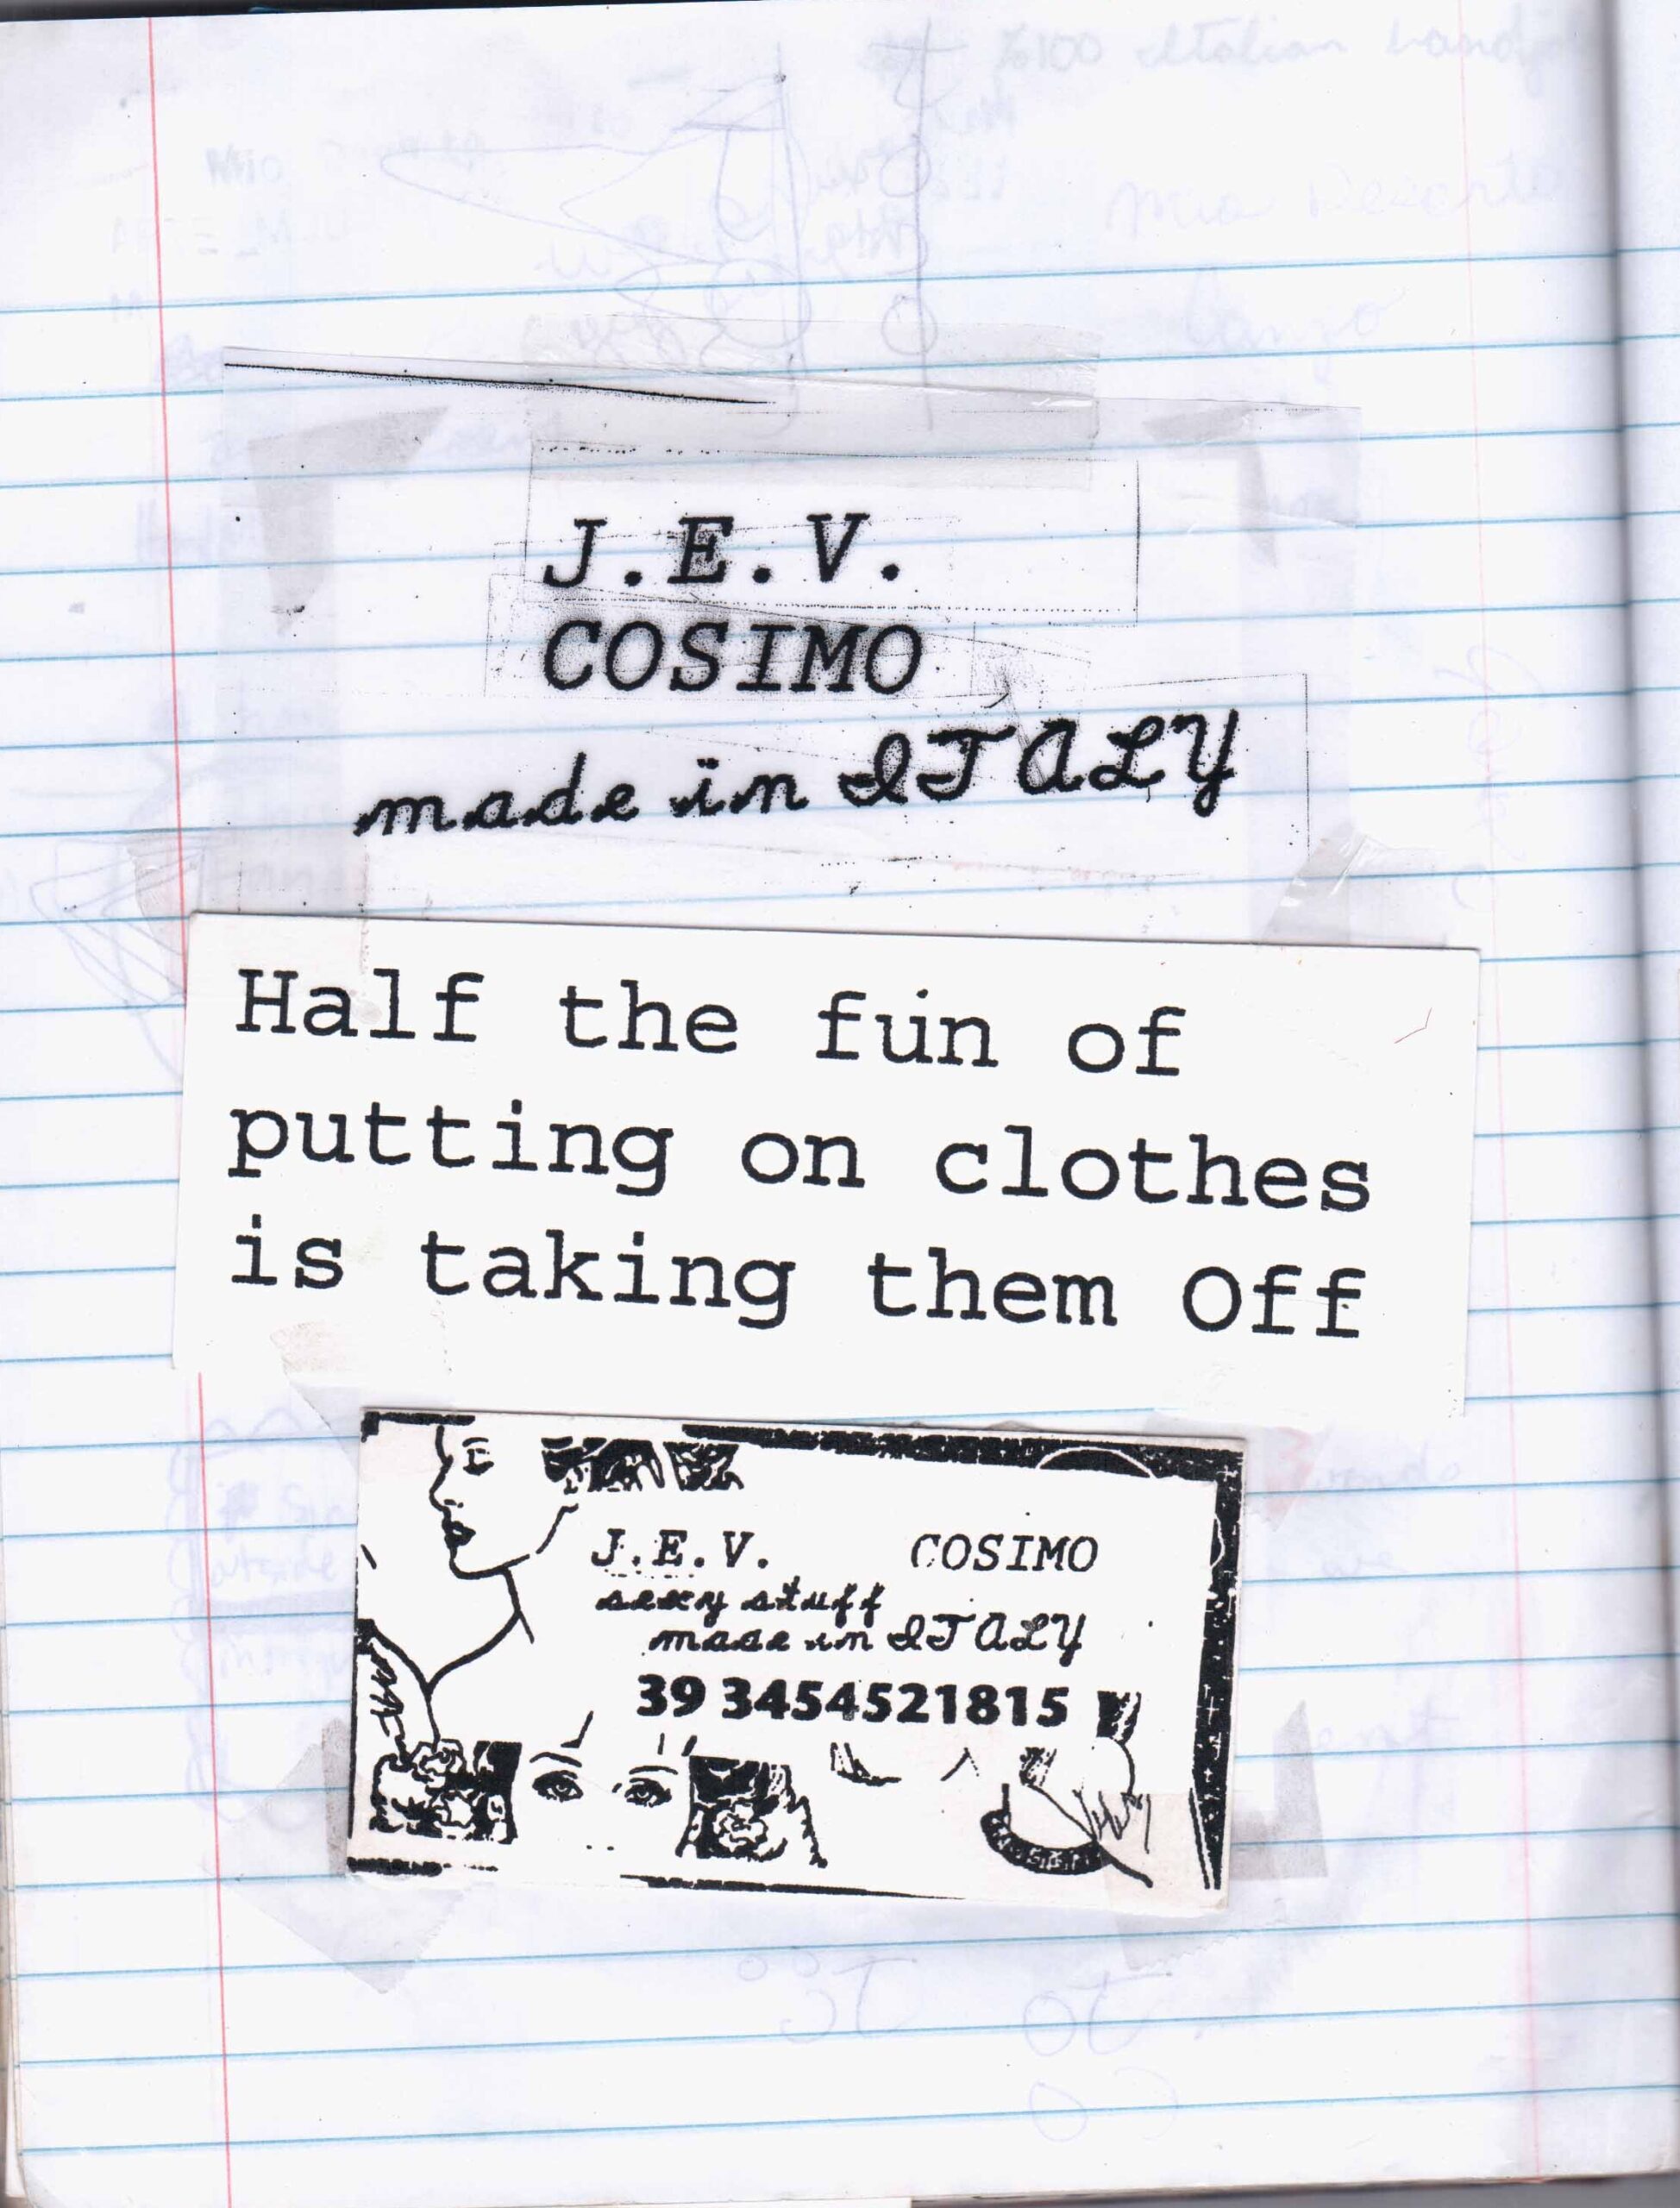 J.E.V.
COSIMO
made in ITALY
Half the fun of
putting on clothes
is taking them Off
J.E.V. COSIMO
sexy stuff
made in ITALY
39 3454521815